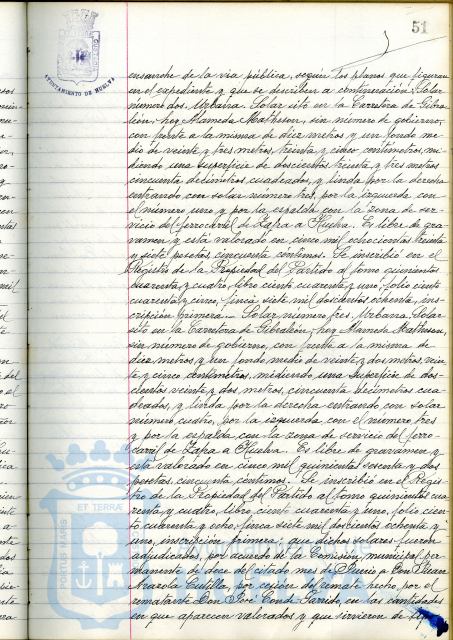 51
AYUNTAMIENTO DE HUELVA
ensanche de la via pública, según los planos que figuran
en el expediente y que se describen a continuación: Solar
número dos. Urbana. Solar sito en la Carretera de Gibra-
león, hoy Alameda Matheson, sin número de gobierno,
con frente a la misma de diez metros y un fondo me-
dio de veinte y tres metros, treinta y cinco centímetros, mi-
diendo una superficie de doscientos treinta y tres metros
cincuenta decímetros cuadrados, y linda por la derecha
entrando con solar número tres, por la izquierda con
el número uno y por la espalda con la zona de ser-
vicio del ferrocarril de Zafra a Huelva. Es libre de gra-
vamen y está valorado en cinco mil ochocientas treinta
y siete pesetas cincuenta céntimos. Se inscribió en el
Registro de la Propiedad del Partido al tomo quinientos
cuarenta y cuatro, libro ciento cuarenta y uno, folio ciento
cuarenta y cinco, finca siete mil doscientos ochenta, ins-
cripción primera. Solar número tres. Urbana. Solar
sito en la Carretera de Gibraleón, hoy Alameda Matheson,
sin número de gobierno, con frente a la misma de
diez metros y un fondo medio de veinte y dos metros, vein-
te y cinco centímetros, midiendo una superficie de dos-
cientos veinte y dos metros, cincuenta decímetros cua-
drados, y linda por la derecha entrando con solar
número cuatro, por la izquierda con el número tres
y por la espalda con la zona de servicio del ferro-
carril de Zafra a Huelva. Es libre de gravamen y
está valorado en cinco mil quinientas sesenta y dos
pesetas, cincuenta céntimos. Se inscribió en el Regis-
tro de la Propiedad del Partido al tomo quinientos cua-
renta y cuatro, libro ciento cuarenta y uno, folio cien-
to cuarenta y ocho, finca siete mil doscientos ochenta y
uno, inscripción primera; que dichos solares fueron
adjudicados, por acuerdo de la Comisión municipal per-
manente de doce del citado mes de Junio a Don Juan
Mazola Cutilla, por cesión del remate hecho por el
rematante Don José Conde Garrido, en las cantidades
en que aparecen valorados y que sirvieron de tipo
PORTUS MARIS ET TERRÆ